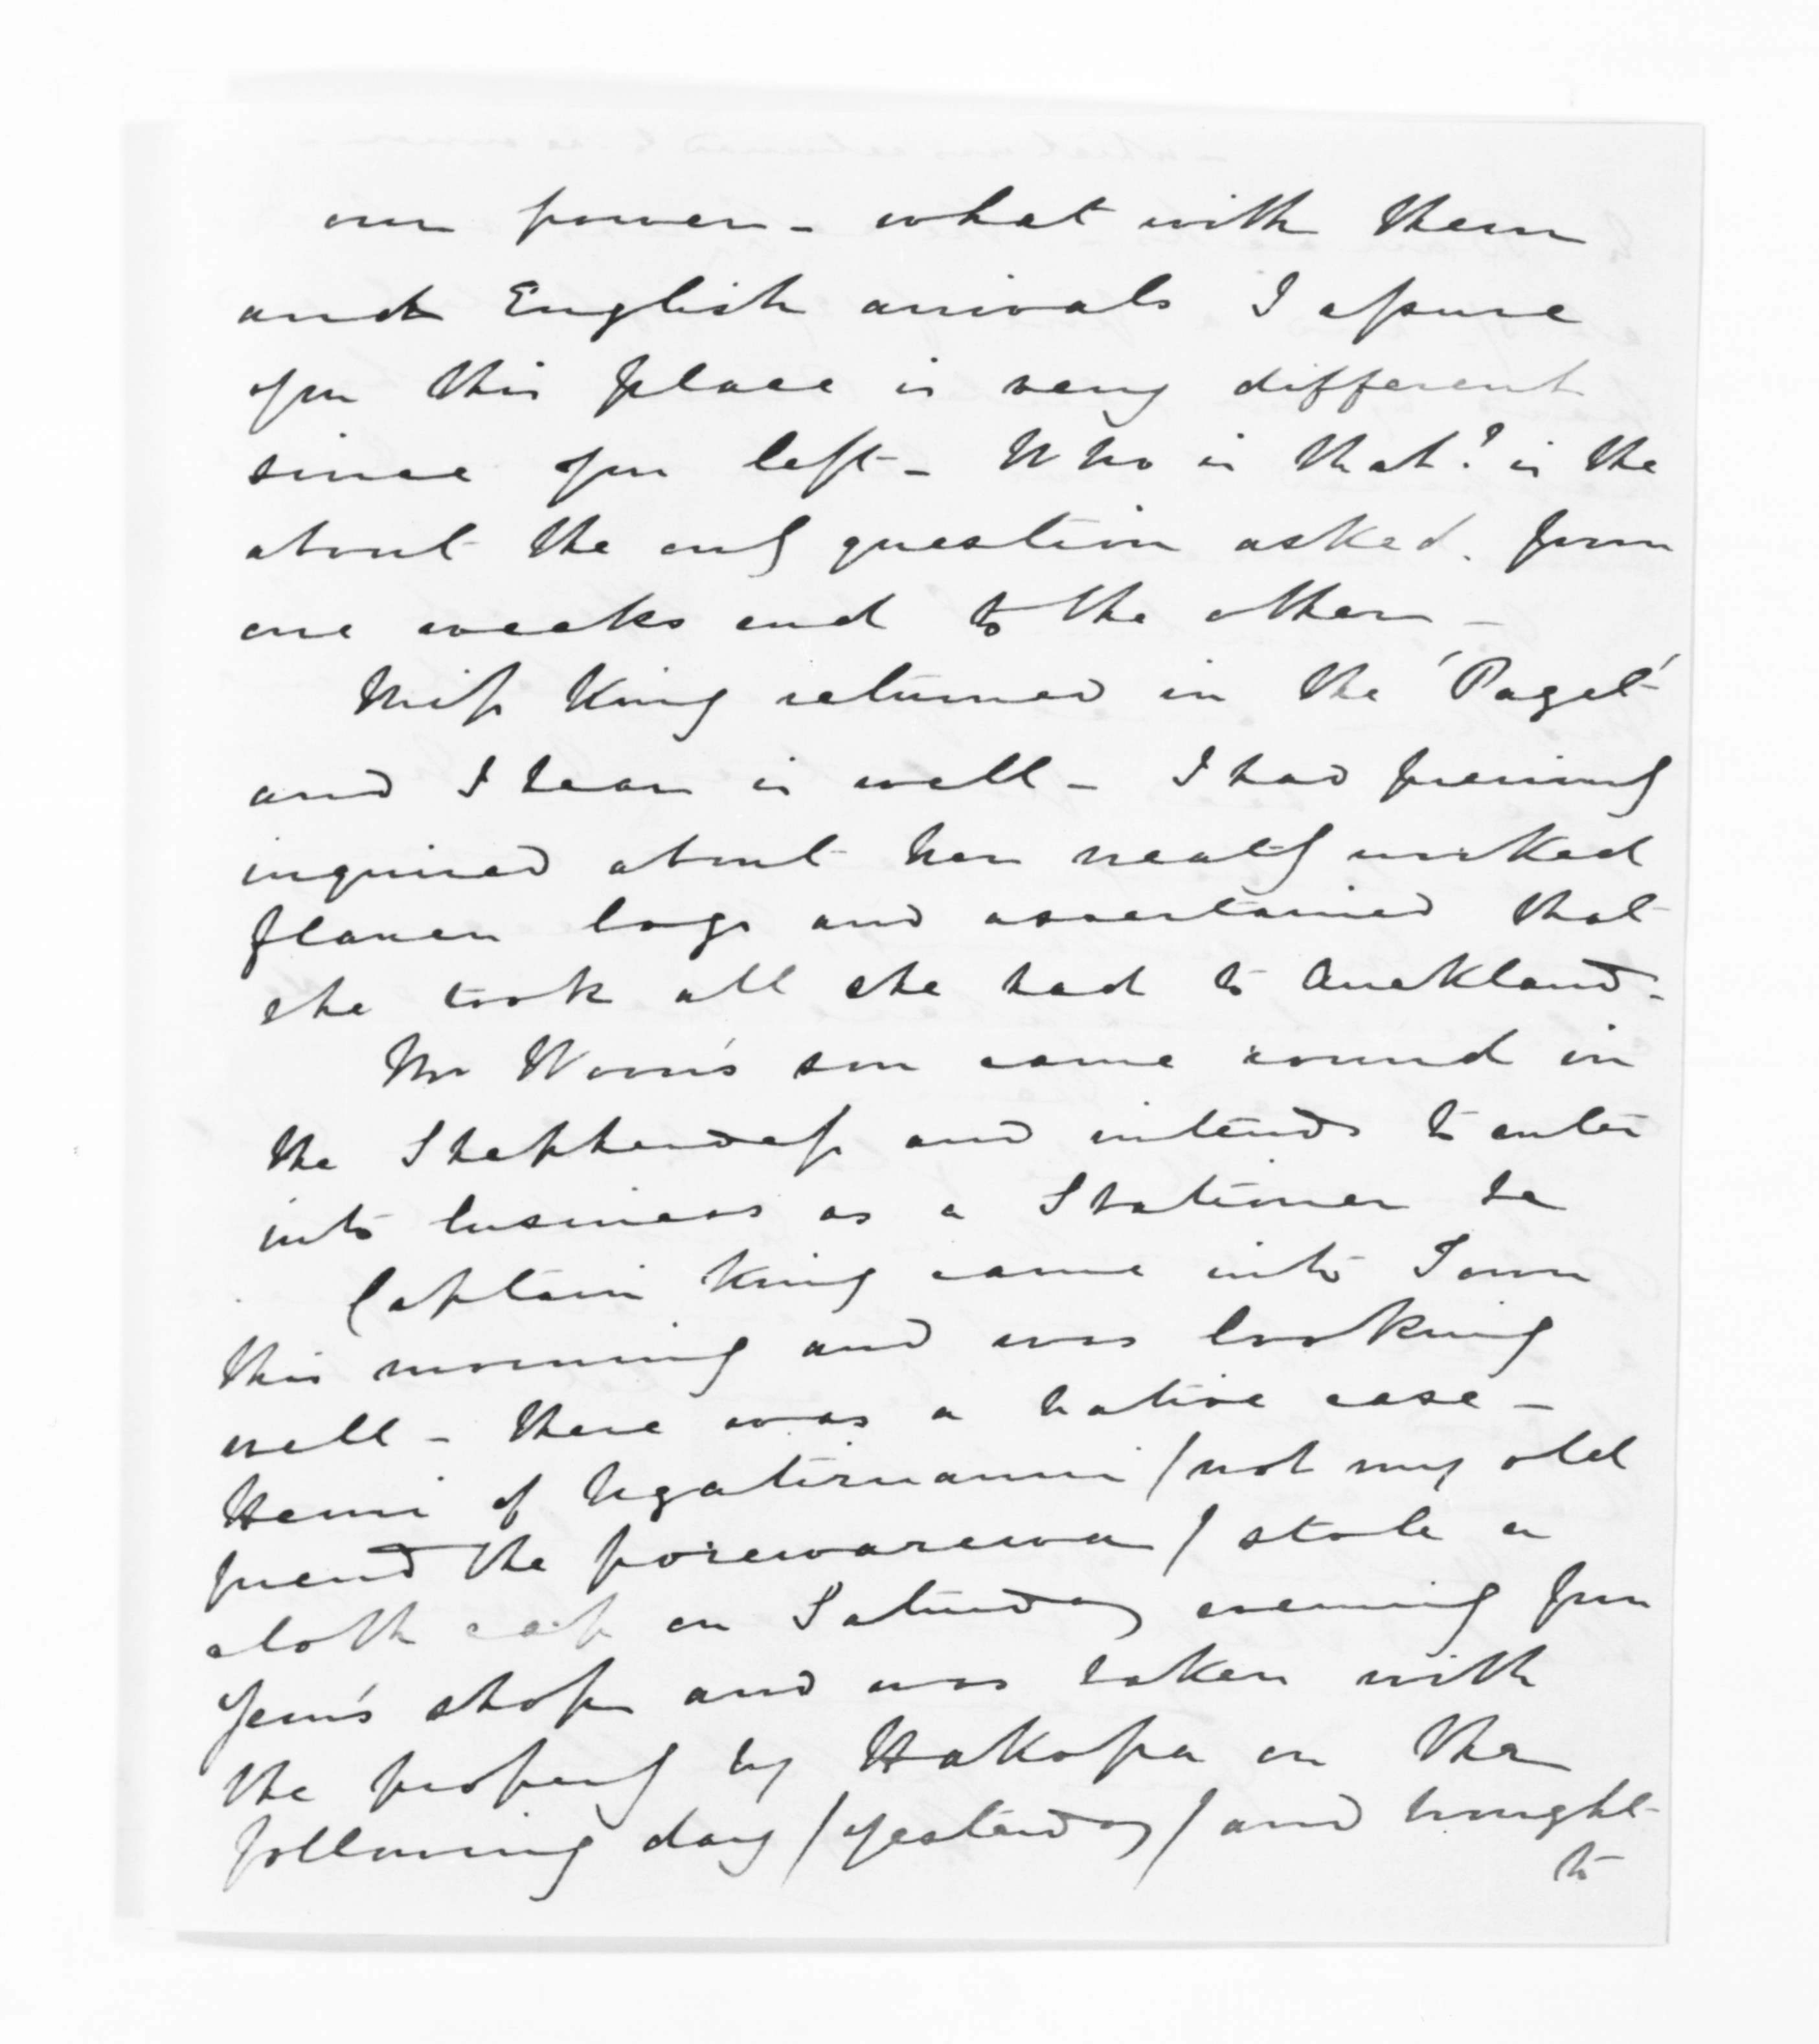 our power - what with them
and English arrivals I assure
you this place is very different
since you left - Who is that? is the
about the only question asked. from
one weeks end to the other -
Miss King returned in the 'Paget'
and I hear is well - I had previously
inquired about her neatly worked
flaxen bags and ascertained that
she took all she had to Auckland.
Mr Woon's son came round in
the Shepherdess and intends to enter
into business as a Stationer &c
Captain King came into Town
this morning and was looking
well - there was a native case -
Hemi of Ngatiruanui (not my old
friend the porewarewa) stole a
cloth cap on Saturday evening from
shop and was taken with
the property by Hakopa on the
following day (yesterday) and brought
to